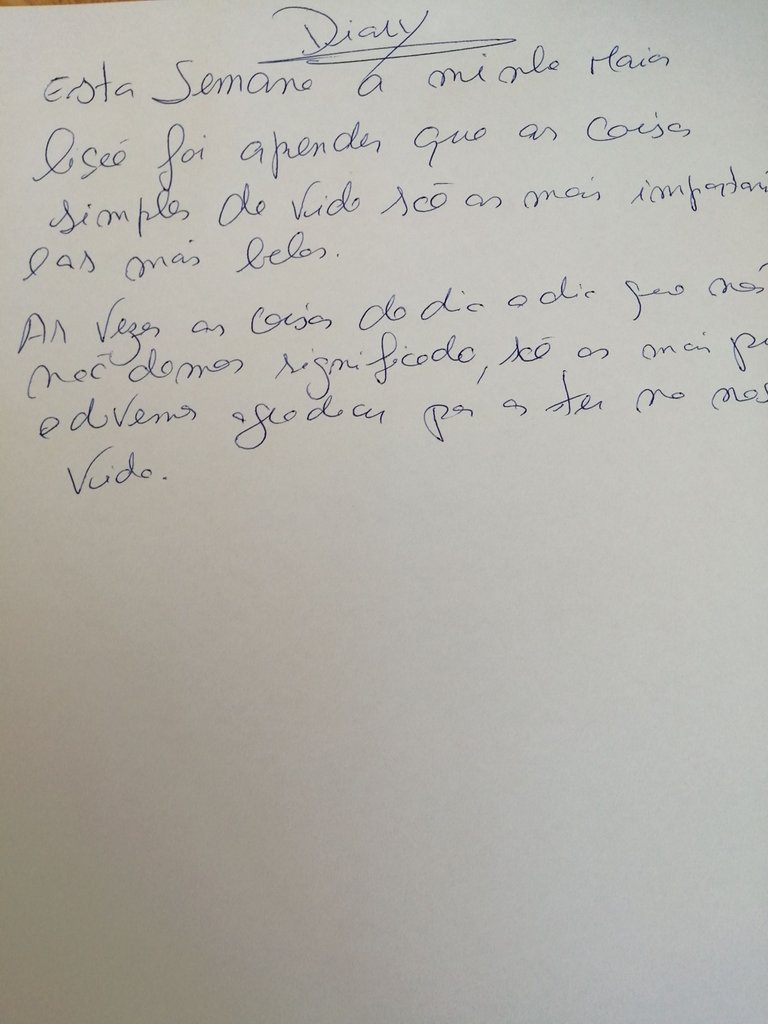 Diary
Esta Semana a minha Maior
lição foi aprender que as coisas
simples da vida são as mais importan
e as mais belas.
As vezes as coisas do dia a dia que nós
não damos significado, são as mais
e devemos agradecer por as ter na nos
Vida.